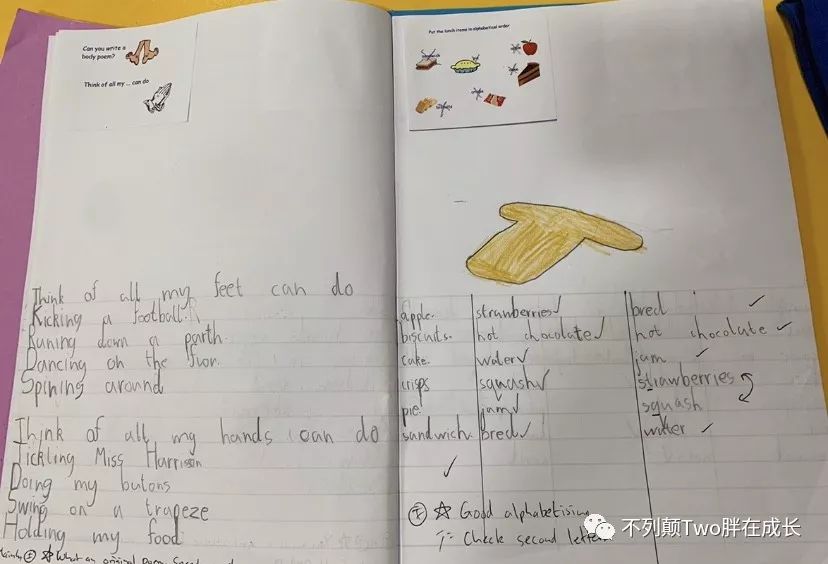 Can you write a
body poem?
Think of all my ... can do
Think of all my feet can do
Kicking a football.
Runing down a parth.
Dancing on the
Spining around
Think of all my hands can do
Tickling Miss Harrison
Doing my butons
Swing on a trapeze
Holding my food
What an original poem
Put the lunch items in alphabetical order
apple.
biscuits.
cake.
crisps
pie.
sandwich.
strawberries ✓
hot chocolate ✓
water ✓
squash ✓
jam ✓
bred ✓
✓
bred ✓
hot chocolate ✓
jam ✓
strawberries
squash
water ✓
Good alphabetising
T: Check second letter
不列颠Two胖在成长